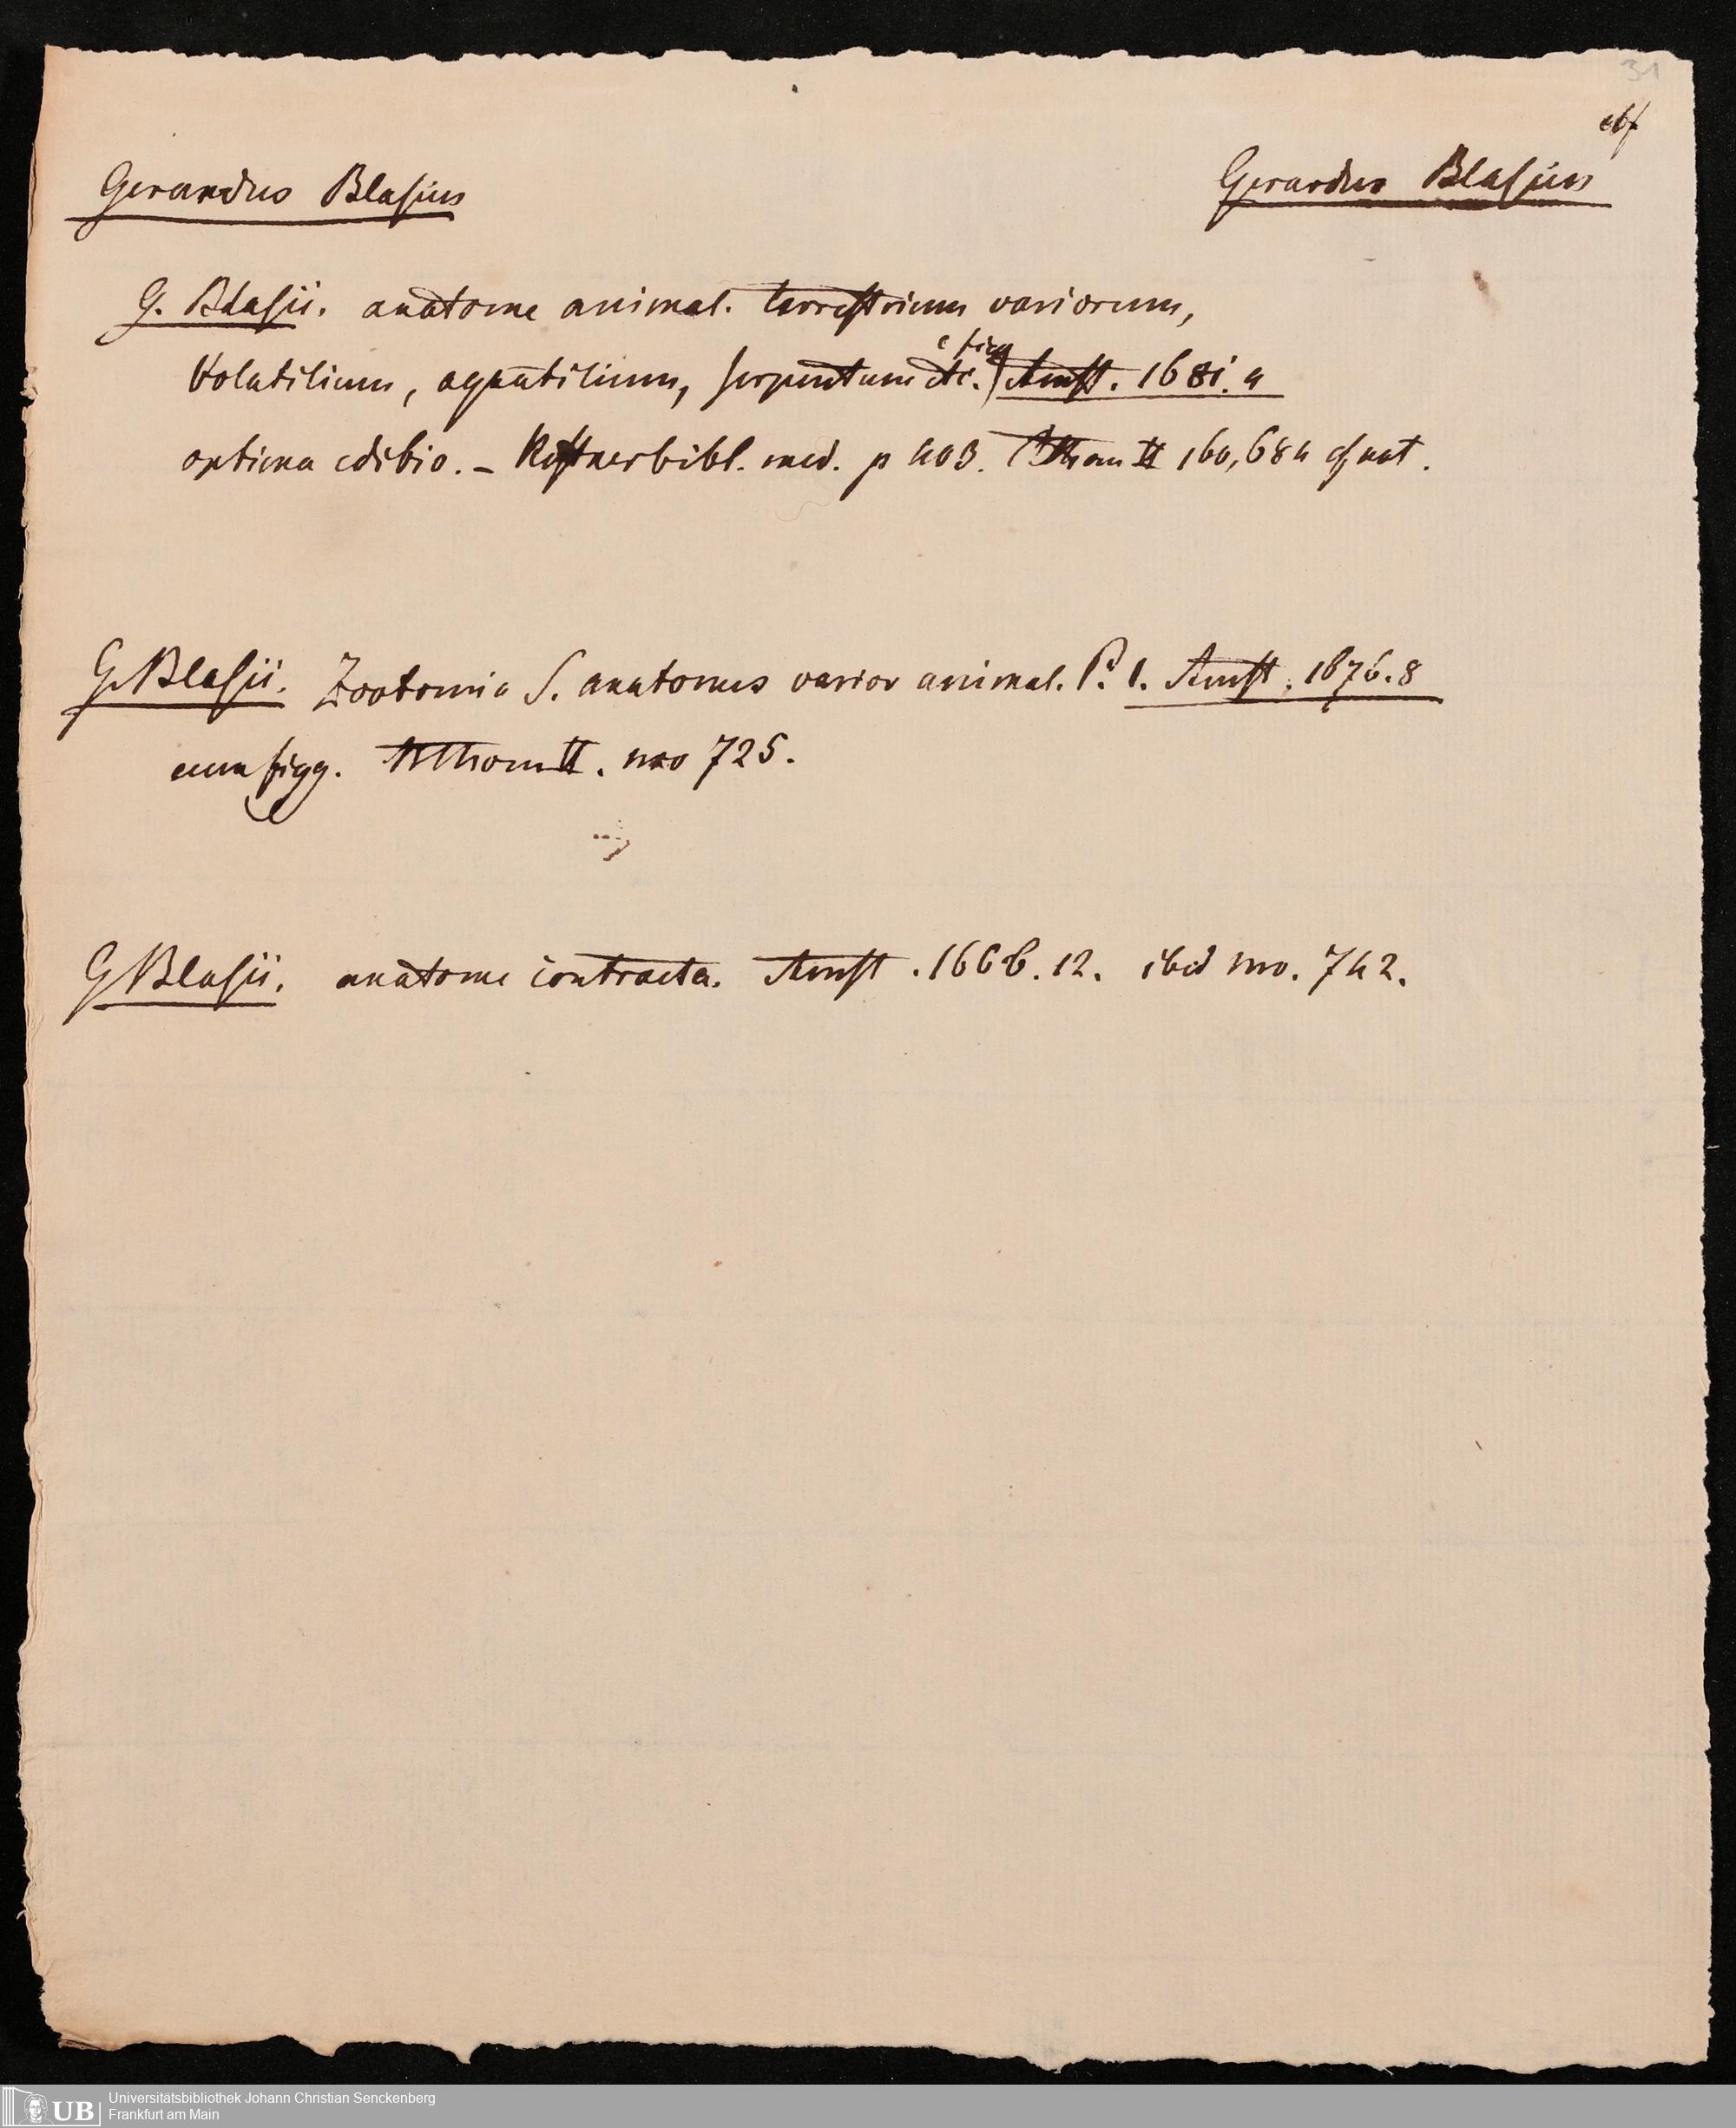 31
Gerardus Blasius
Gerardus Blasius
G. Blasii. anatome animal. terrestrium variorum,
Volatilium, aquatilium, serpentum etc. c figg Amst. 1681. 4
optima editio. – Kestner bibl. med. p 403. II 160, 684
G Blasii. Zootomia S. anatomes varior animal. P. 1. Amst. 1676. 8
cum figg. II. nro 725.
G Blasii. anatome contracta. Amst. 1666. 12. ibid nro. 742.
Universitätsbibliothek Johann Christian Senckenberg
Frankfurt am Main
UB